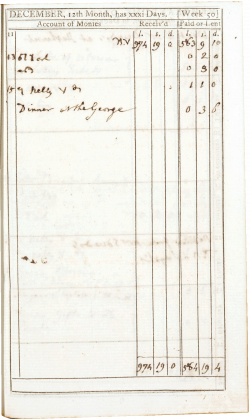 DECEMBER, 12th Month, has xxxi Days. Week 50
Account of Monies Receiv'd Paid or Lent
l. s. d. l. s. d.
11 974 19 0 583 9 10
13 0 2 0
0 3 0
15 Nelly 1 1 0
Dinner at the George 0 3 6
974 19 0 584 19 4